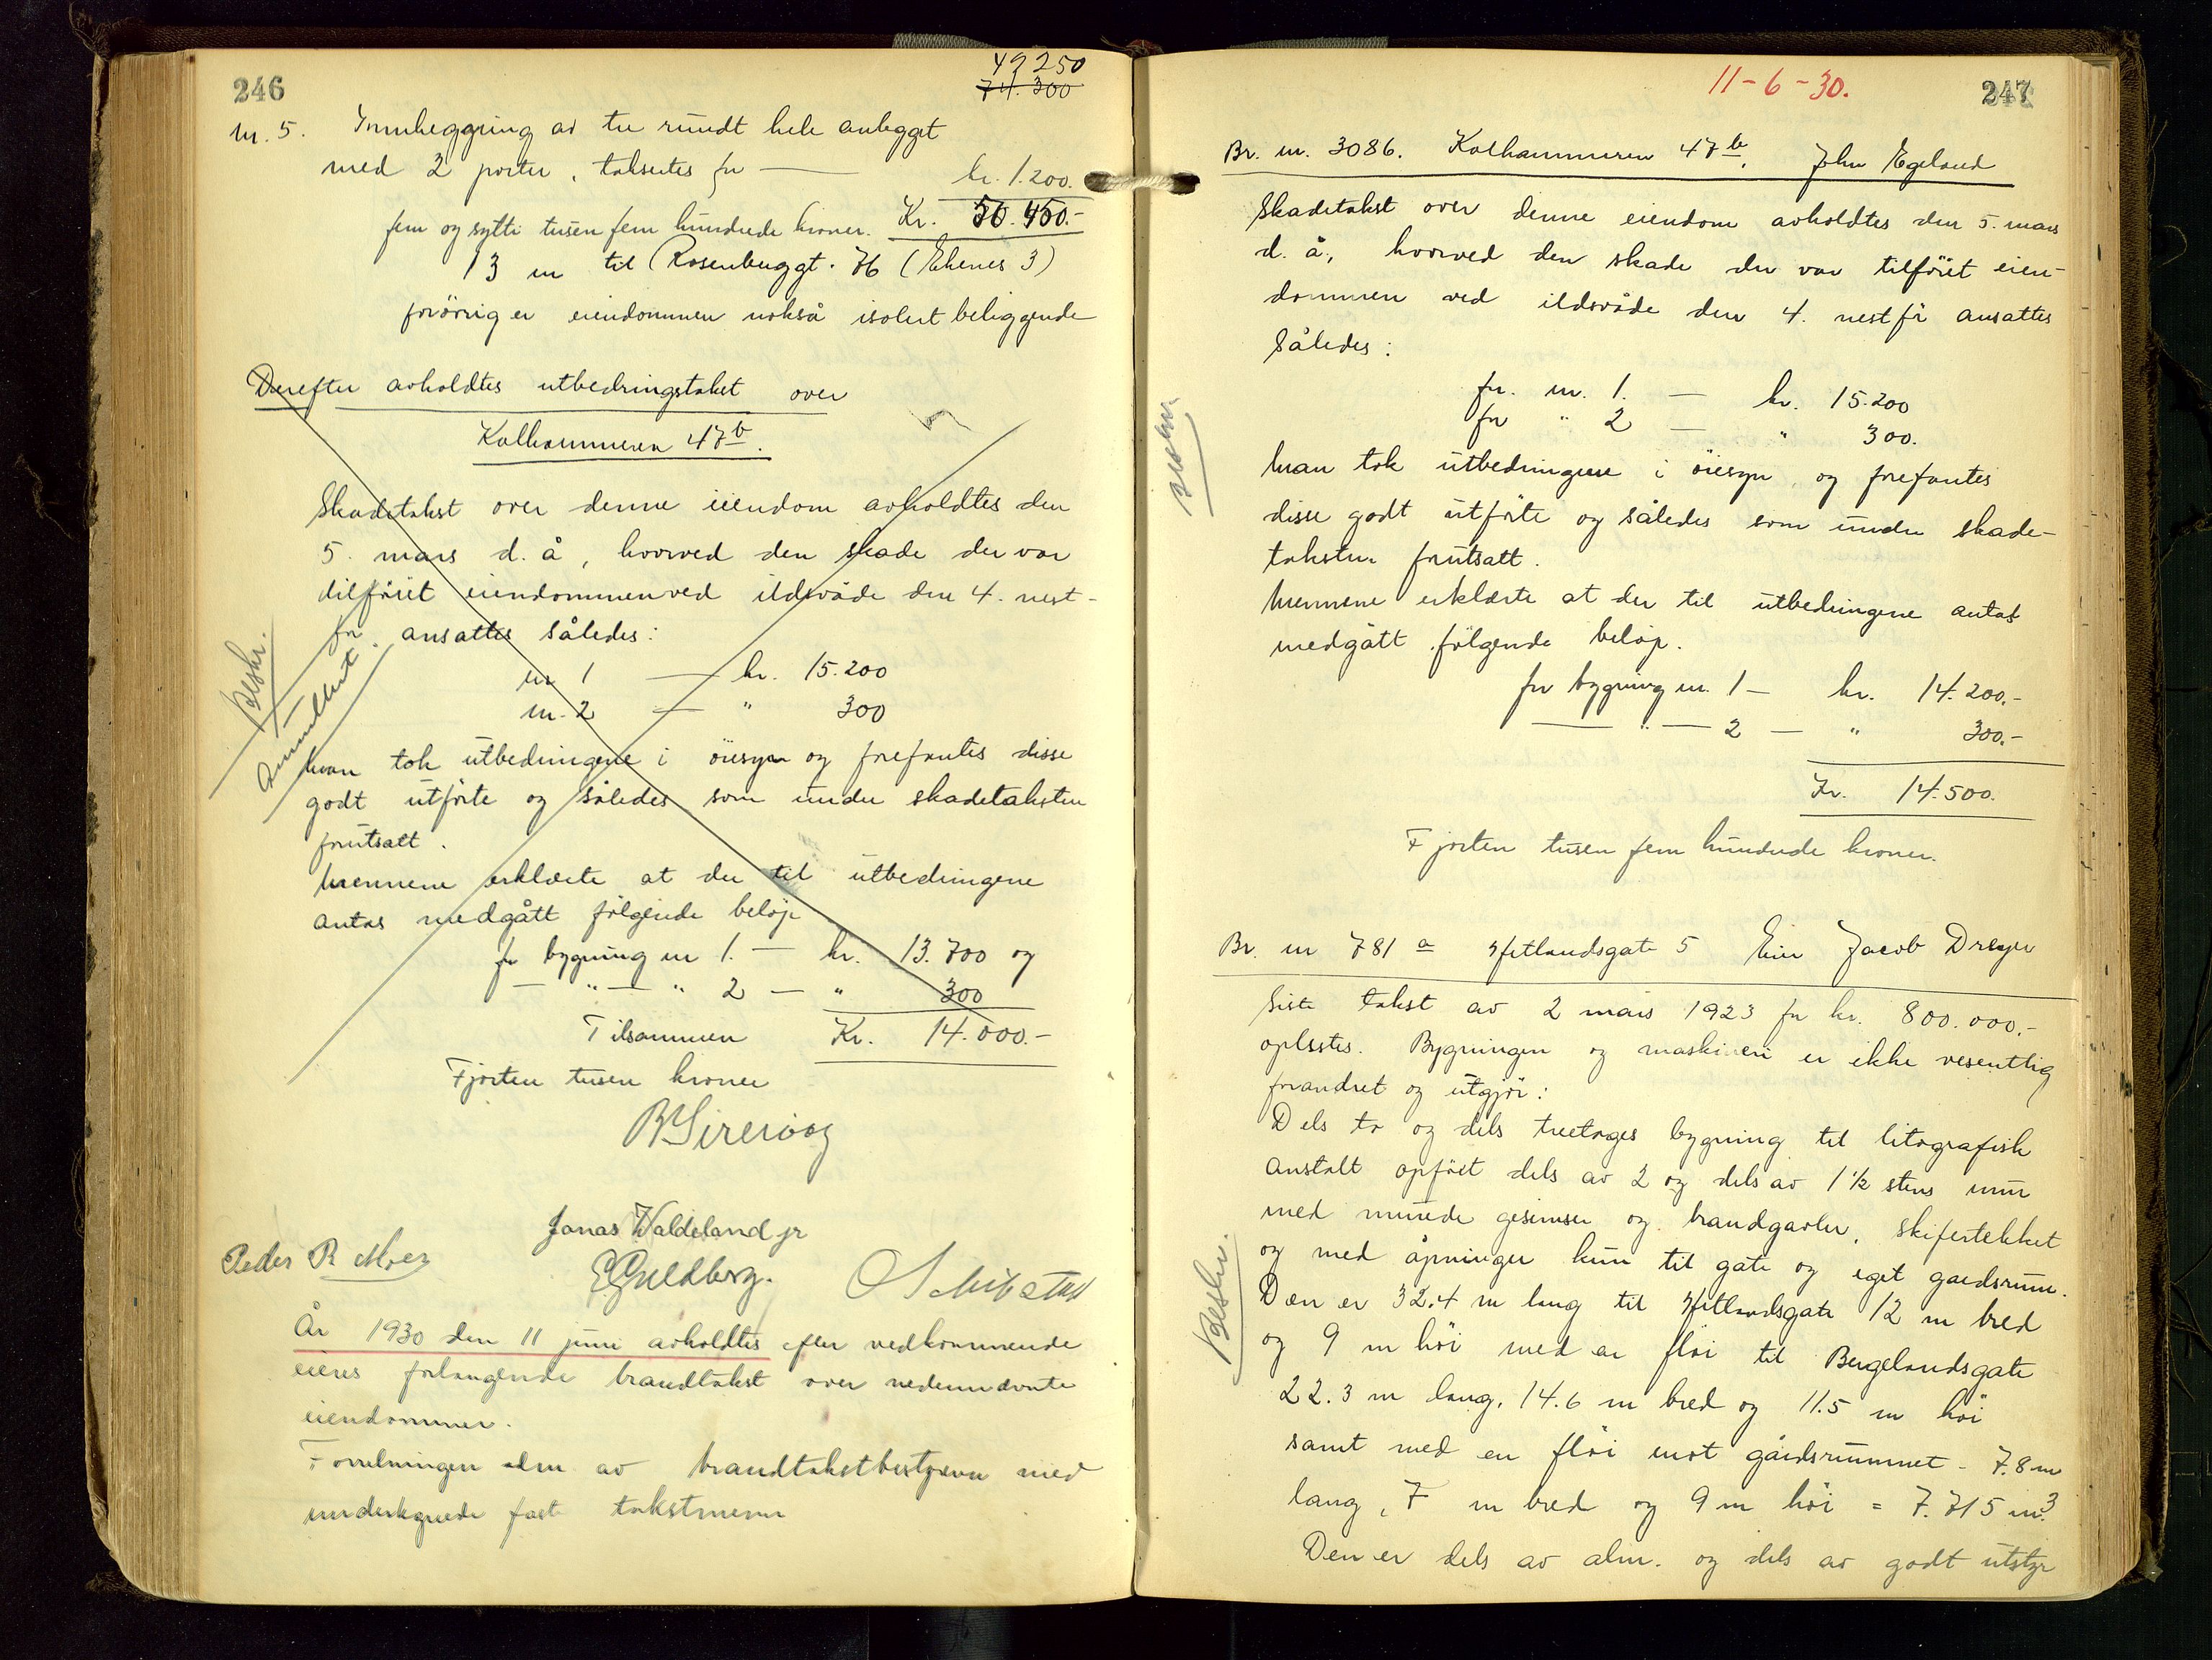 246
49 250
74.300
nr. 5. Innheggning av tre rundt hele anlegget
med 2 porter, takseres for — kr. 1.200.
fem og sytti tusen fem hundrede kroner. Kr. 50.450.-
13 m til Rosenberggt. 76 (Ekenes 3)
forøvrig er eiendommen nokså isolert beliggende
Derefter avholdtes utbedringstakst over
Kalhammeren 47b.
Skadetakst over denne eiendom avholdtes den
5. mars d. å, hvorved den skade der var
tilføiet eiendommen ved ildsvåde den 4. nest-
før. ansattes således:
nr 1 — kr. 15.200
nr. 2 — " 300
Beskr.
Annullert
Man tok utbedringene i öiesyn og forefantes disse
godt utførte og således som under skadetaksten
forutsatt.
Mennene erklærte at der til utbedringene
antas medgått følgende beløp
for bygning nr 1. — kr. 13.700 og
— " — " 2 — " 300
Tilsammen Kr. 14.000.-
Fjorten tusen kroner
B Sirevåg
Jonas Waldeland jr
Peder R Moez
E Guldberg. O Schibstad
År 1930 den 11 juni avholdtes efter vedkommende
eieres forlangende brandtakst over nedennævnte
eiendommer.
Forretningen blev av brandtakstbestyreren med
undertegnede faste takstmenn
11-6-30.
247
Br. nr. 3086. Kalhammeren 47b. John Egeland
Skadetakst over denne eiendom avholdtes den 5. mars
d. å., hvorved den skade der var tilføiet eien-
dommen ved ildsvåde den 4. nestfør ansattes
Således:
for. nr. 1. — kr. 15.200
for " 2 — " 300.
Man tok utbedringene i öiesyn, og forefantes
disse godt utførte og således som under skade-
taksten forutsatt.
Mennene erklærte at der til utbedringene antas
medgått følgende beløp.
for bygning nr. 1 — kr. 14.200.-
— " — 2 — " 300.-
Kr. 14.500.
Fjorten tusen fem hundrede kroner.
Br. nr 781a Hetlandsgate 5 Eier Jacob Dreyer
Siste takst av 2 mars 1923 for kr. 800.000.-
oplestes. Bygningen og maskineri er ikke vesentlig
forandret og utgjør:
Dels to og dels treetages bygning til litografisk
anstalt opført dels av 2 og dels av 1 1/2 stens mur
med murede gesimser og brandgavler, skifertekket
og med åpninger kun til gate og eget gaardsrum.
Beskr.
Den er 32.4 m lang til Hetlandsgate 12 m bred
og 9 m høi med en fløi til Bergelandsgate
22.3 m lang, 14.6 m bred og 11.5 m høi
samt med en fløi mot gårdsrummet - 7.8 m
lang, 7 m bred og 9 m høi = 7.715 m3.
Den er dels av alm. og dels av godt utstyr